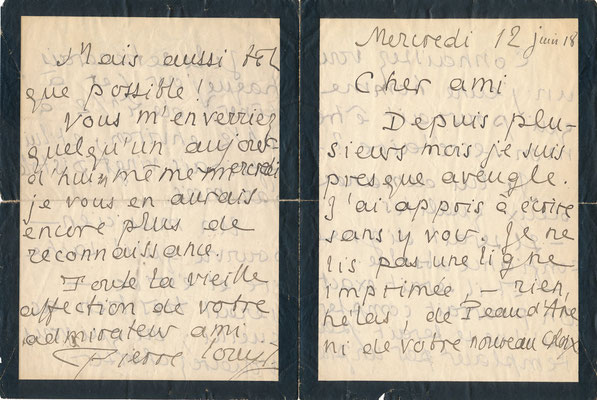 Mercredi 12 juin 18
Cher ami
Depuis plu-
sieurs mois je suis
presque aveugle.
J'ai appris à écrire
sans y voir. Je ne
lis pas une ligne
imprimée – rien,
hélas de Peau d'Ane
ni de votre nouveau choix
Mais aussi tôt
que possible!
Vous m'enverriez
quelqu'un aujour-
d'hui même mercredi
je vous en aurais
encore plus de
reconnaissance.
Toute la vieille
affection de votre
admirateur ami
Pierre Louÿs